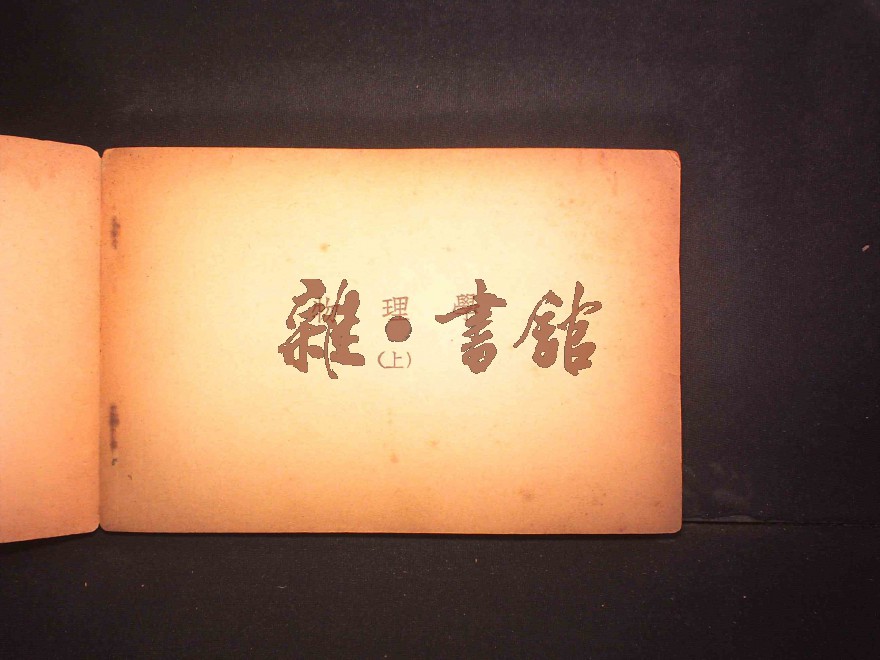 物理學
雜·書館
(上)